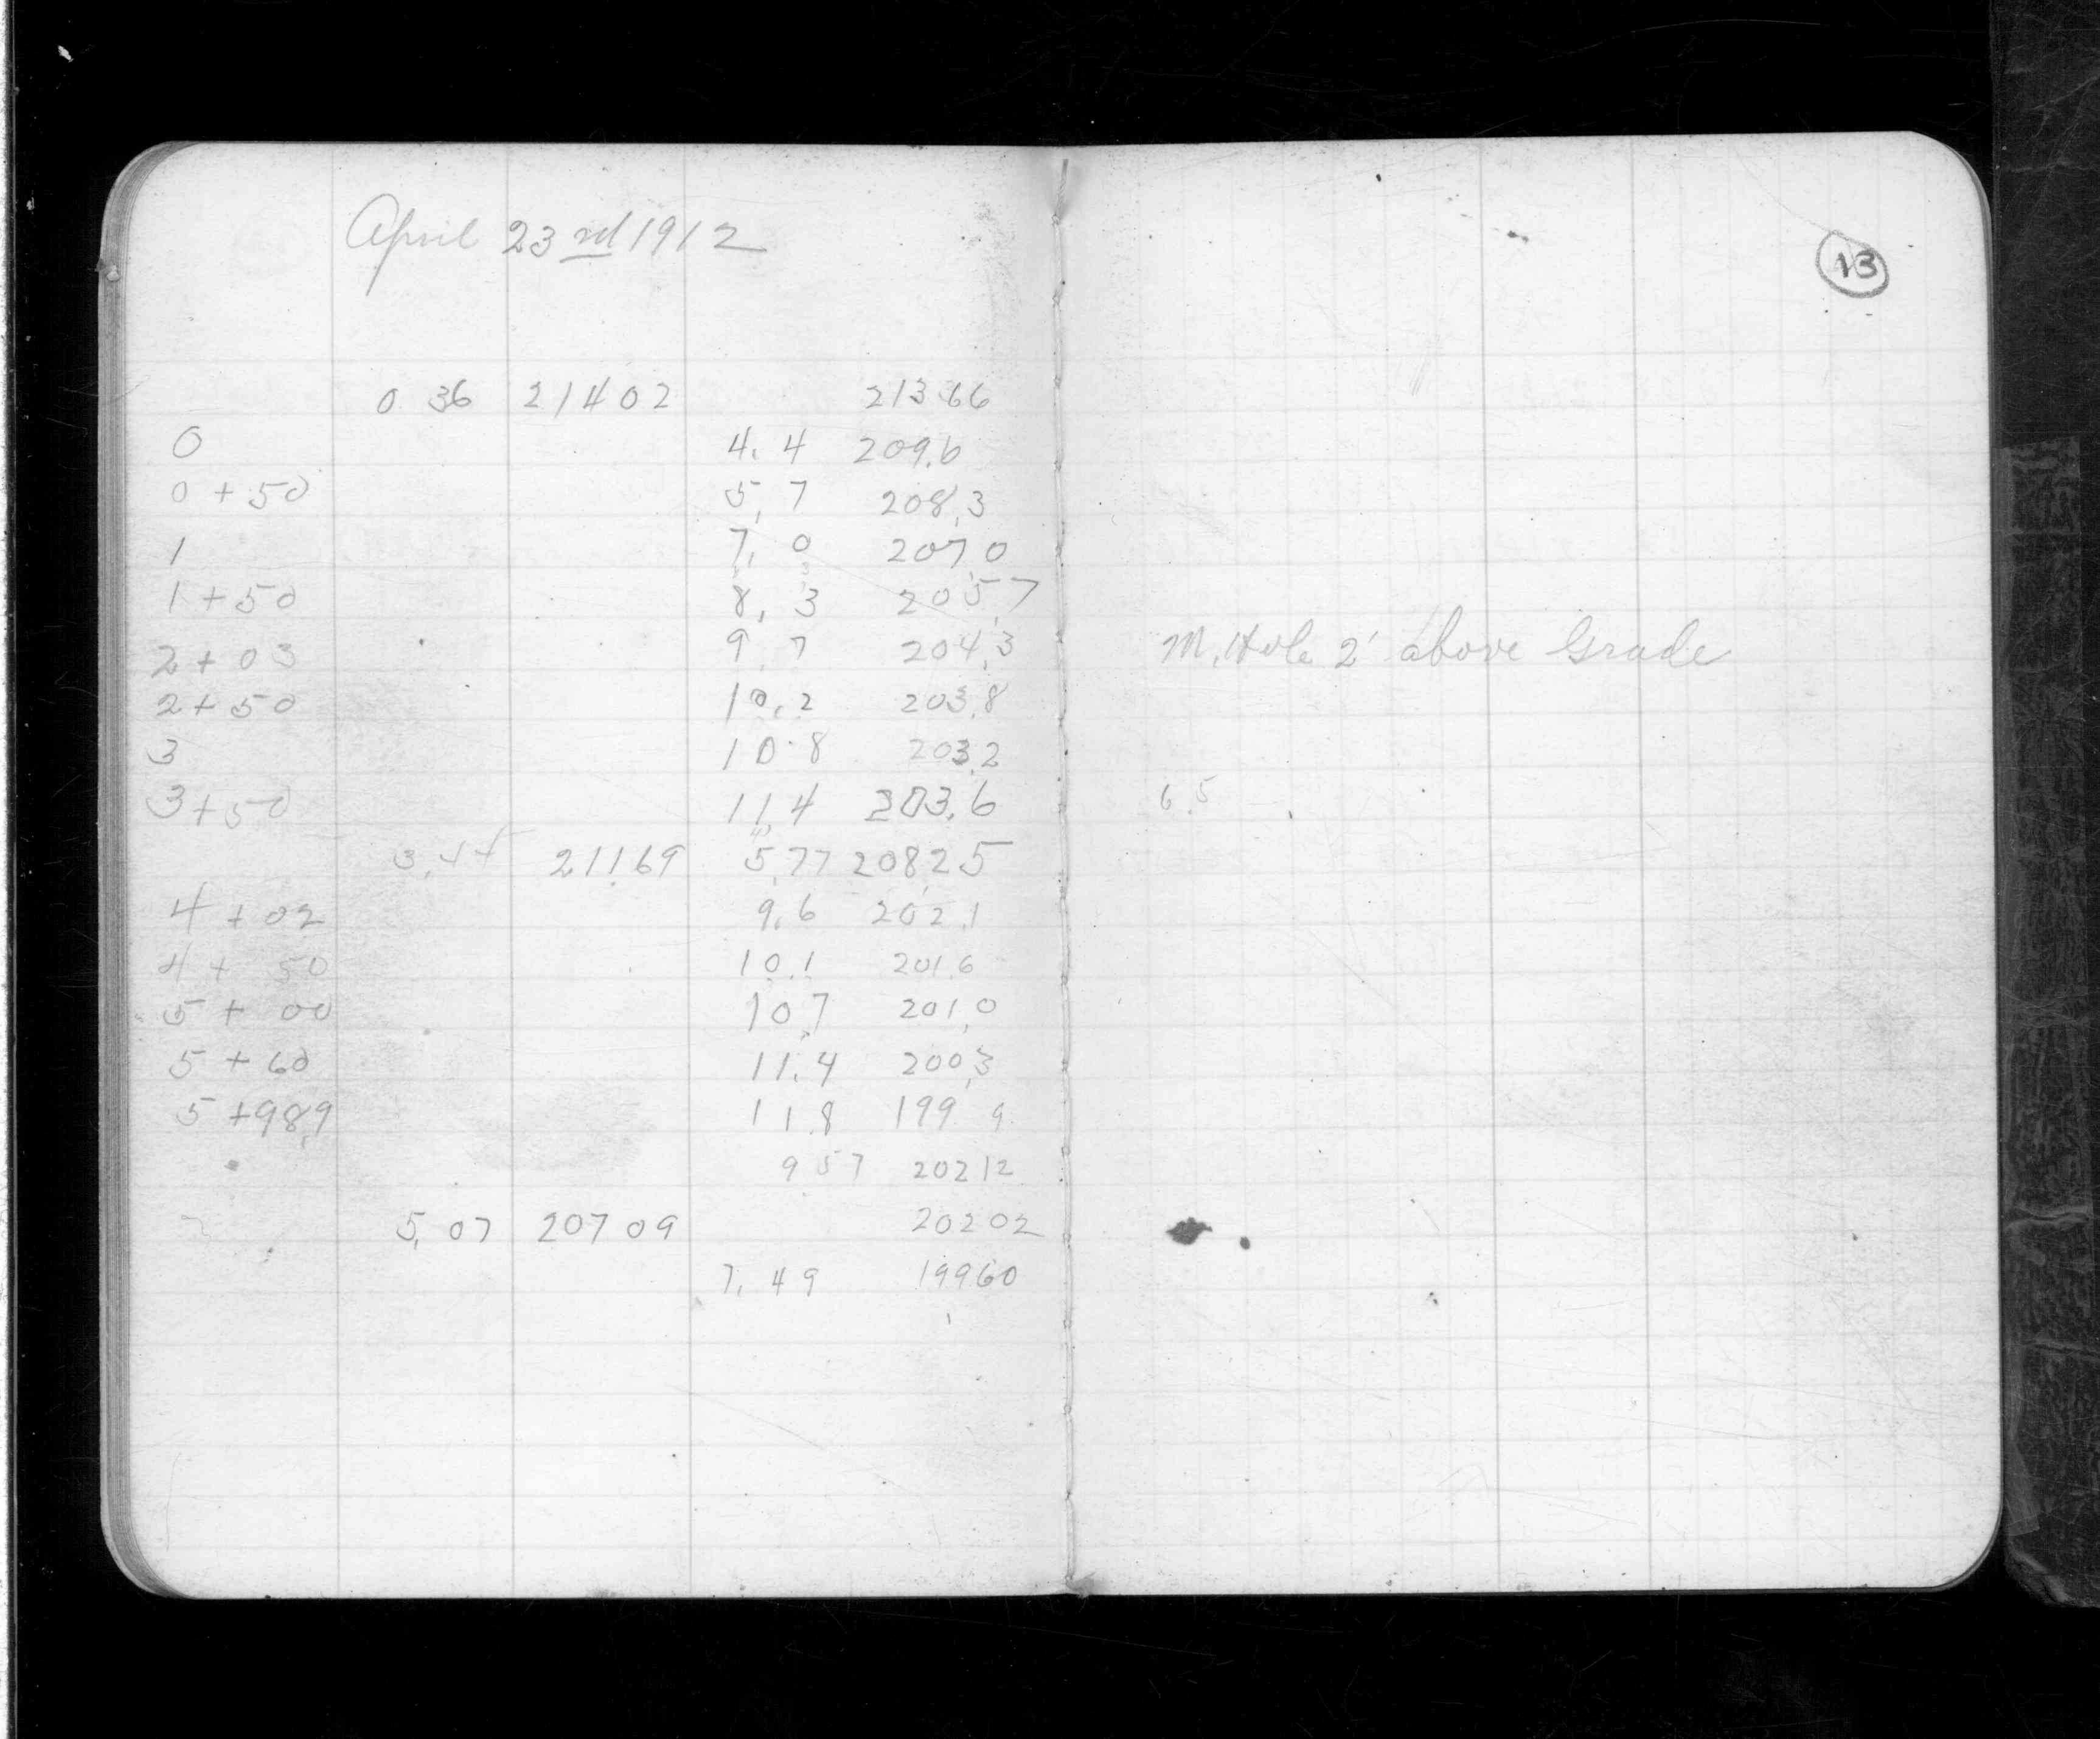 April 23rd 1912
13
0 36 214 02 213.66
0 4.4 209.6
0 + 50 5.7 208.3
1 7.0 207.0
1 + 50 8.3 205.7
2 + 03 9.7 204.3 M. Hole 2' above Grade
2 + 50 10.2 203.8
3 10.8 203.2
3 + 50 11.4 203.6 6.5
3.44 211.69 5.77 208.25
4 + 02 9.6 202.1
4 + 50 10.1 201.6
5 + 00 10.7 201.0
5 + 60 11.4 200.3
5 + 98.9 11.8 199 9
9 57 202 12
5.07 207 09 202 02
7.49 199.60